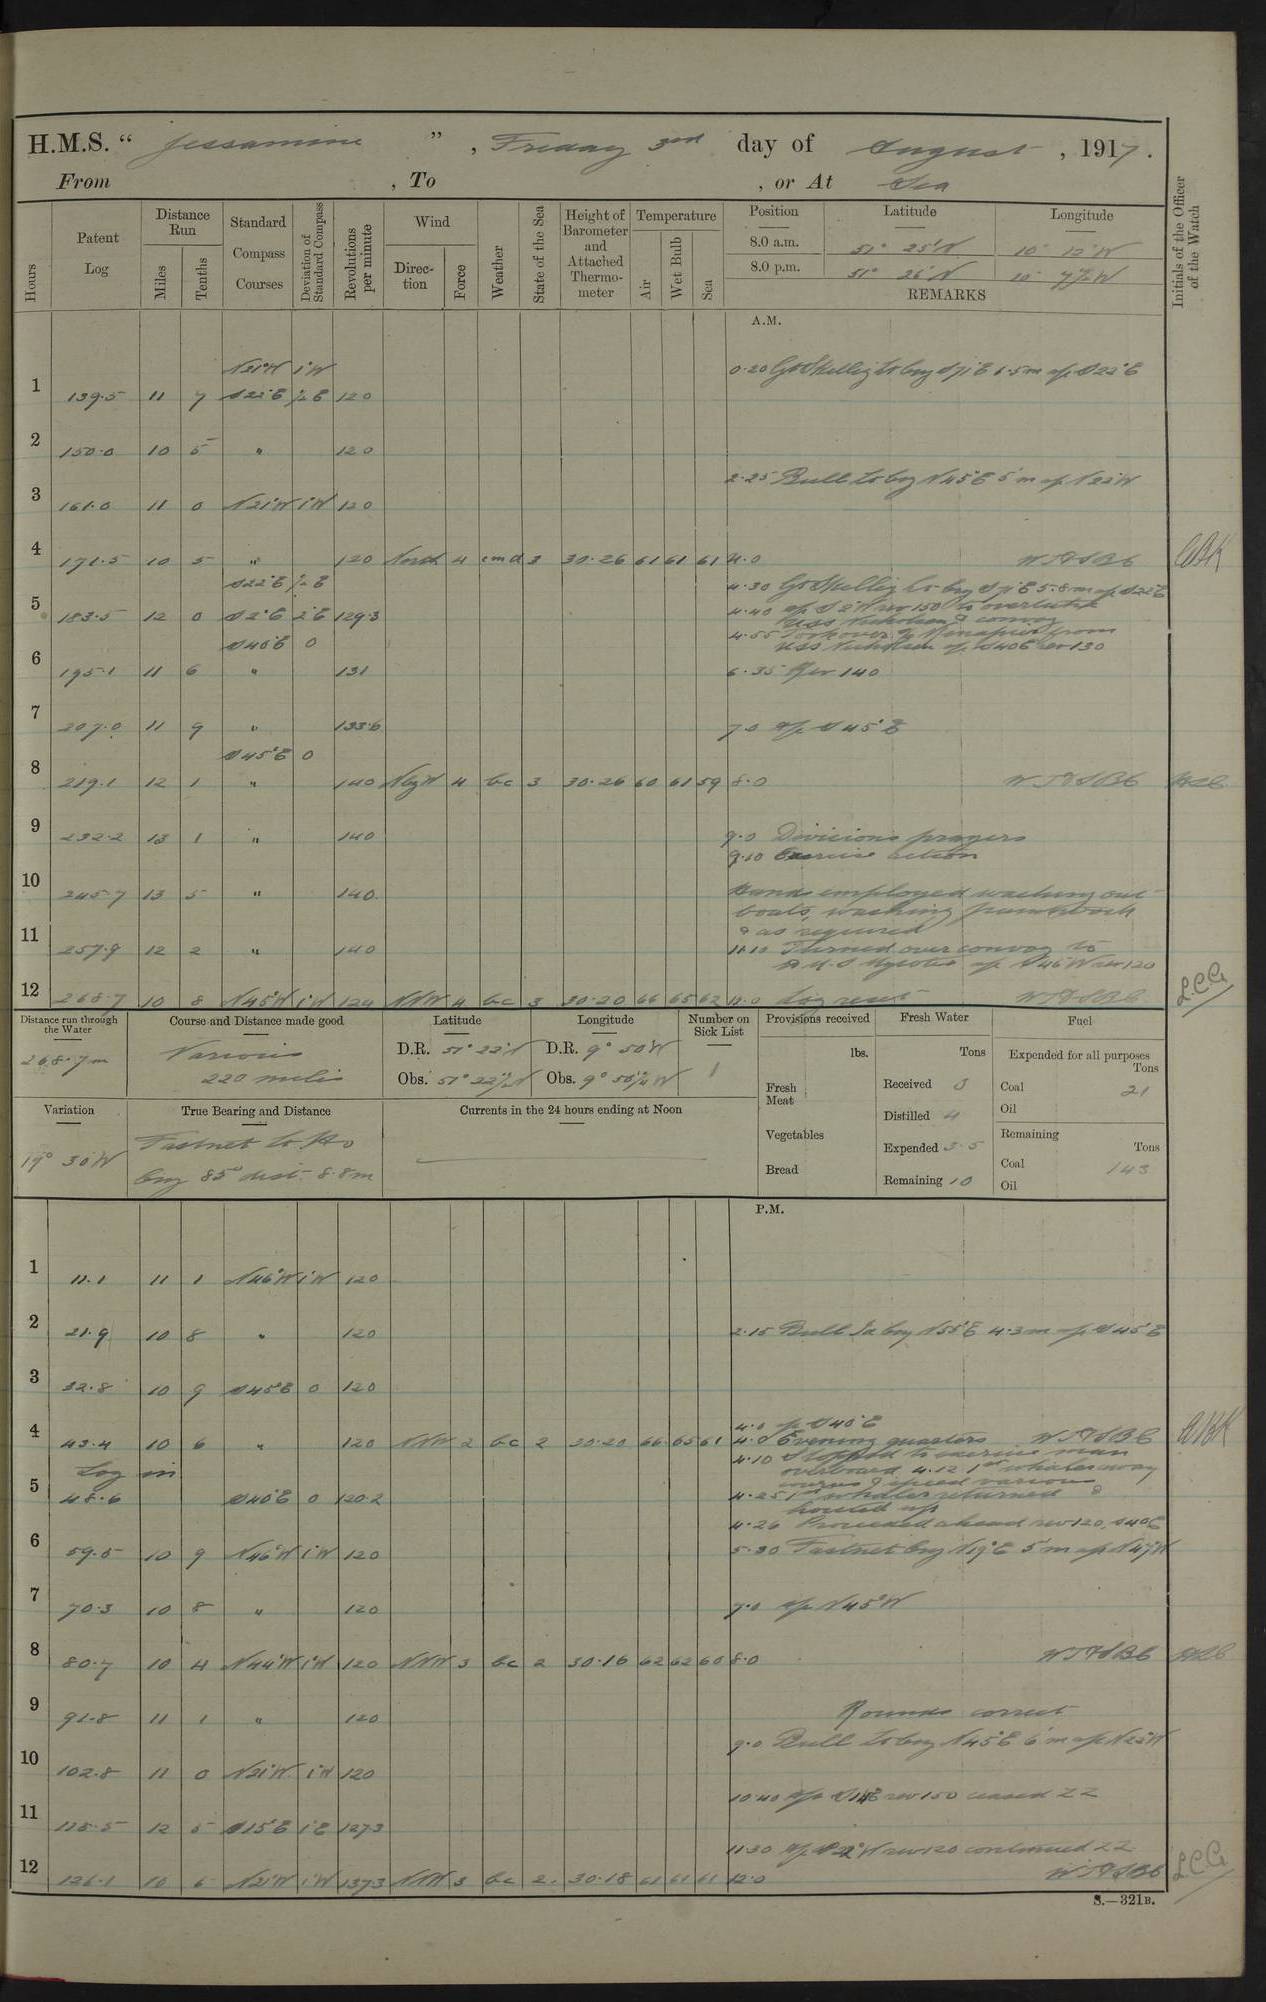 H.M.S. “ Jessamine ” , Friday 3rd day of August , 1917 .
From , To , or At Sea
Hours
Patent Log
Distance Run
Miles
Tenths
Standard Compass Courses
Deviation of Standard Compass
Revolutions per minute
Wind
Direction
Force
Weather
State of the Sea
Height of Barometer and Attached Thermometer
Temperature
Air
Wet Bulb
Sea
Position Latitude Longitude
8.0 a.m. 51° 25' N 10° 12' W
8.0 p.m. 51° 26' N 10°
REMARKS
Initials of the Officer of the Watch
A.M.
N21°W 1°W 0.20 Gt Skellig Lt brg S71°E 6.5m a/c S22°E
1 139.5 11 7 S22°E ½E 120
2 150.0 10 5 " 120
2.25 Bull Lt brg N45°E 5'm a/c N22°W
3 161.0 11 0 N21°W 1°W 120
4 171.5 10 5 " 120 North 4 cmd 3 30.26 61 61 61 4.0
S22°E ½E 4.30 Gt Skellig Lt brg S71°E 5.8m a/c S22°E
5 183.5 12 0 S2°E 2°E 129.3 4.40 a/c S2°W rev 150 to overtake
USS Nicholson & convoy
S40°E 0 4.55 Took over from
USS Nicholson a/c S40E rev 130
6 195.1 11 6 " 131 6.35 Rev 140
7 207.0 11 9 " 133.6 7.0 a/c S45°E
S45°E 0
8 219.1 12 1 " 140 NbyW 4 bc 3 30.26 60 61 59 8.0
9 232.2 13 1 " 140 9.0 Divisions prayers
9.10 Exercise action
10 245.7 13 5 " 140 Hands employed washing out
boats, washing paintwork
& as required
11 257.9 12 2 " 140 11.10 Turned over convoy to
a/c N46°W rev 120
12 268.7 10 8 N45°W 1°W 124 NNW 4 bc 3 30.20 66 65 62 12.0 Log reset L.C.G.
Distance run through the Water
268.7m
Course and Distance made good
Various
220 miles
Latitude
D.R. 51° 22' N
Obs. 51° N
Longitude
D.R. 9° 50' W
Obs. 9° W
Number on Sick List
1
Provisions received
lbs.
Fresh Meat
Vegetables
Bread
Fresh Water
Tons
Received 0
Distilled 4
Expended 3.5
Remaining 10
Fuel
Expended for all purposes
Tons
Coal 21
Oil
Remaining
Tons
Coal 143
Oil
Variation
19° 30' W
True Bearing and Distance
Fastnet Lt Ho
brg 85° dist 8.8m
Currents in the 24 hours ending at Noon
P.M.
1 11.1 11 1 N46°W 1°W 120
2 21.9 10 8 " 120 2.15 Bull Lt brg N55°E 4.3m a/c S45°E
3 32.8 10 9 S45°E 0 120
4.0 a/c S40°E
4 43.4 10 6 " 120 NNW 2 bc 2 30.20 66 65 61 4.0 Evening quarters
Log in 4.10 Stopped to exercise man
overboard 4.12 1st whaler away
courses & speed various
5 48.6 S40°E 0 120.2 4.25 1st whaler returned &
hoisted up
4.26 Proceeded ahead rev 120, S40E
6 59.5 10 9 N46°W 1°W 120 5.30 Fastnet brg N19°E 5'm a/c N47°W
7 70.3 10 8 " 120 7.0 a/c N45°W
8 80.7 10 4 N44°W 1°W 120 NNW 3 bc 2 30.16 62 62 60 8.0
9 91.8 11 1 " 120 Rounds correct
9.0 Bull Lt brg N45°E 6'm a/c N22°W
10 102.8 11 0 N21°W 1°W 120
10.40 a/c rev 150 ceased ZZ
11 115.5 12 5 S15°E 1°E 127.3
11.30 a/c rev 120 continued ZZ
12 126.1 10 6 N21°W 1°W 137.3 NNW 3 bc 2 30.18 61 61 61 12.0 L.C.G.
S.—321B.